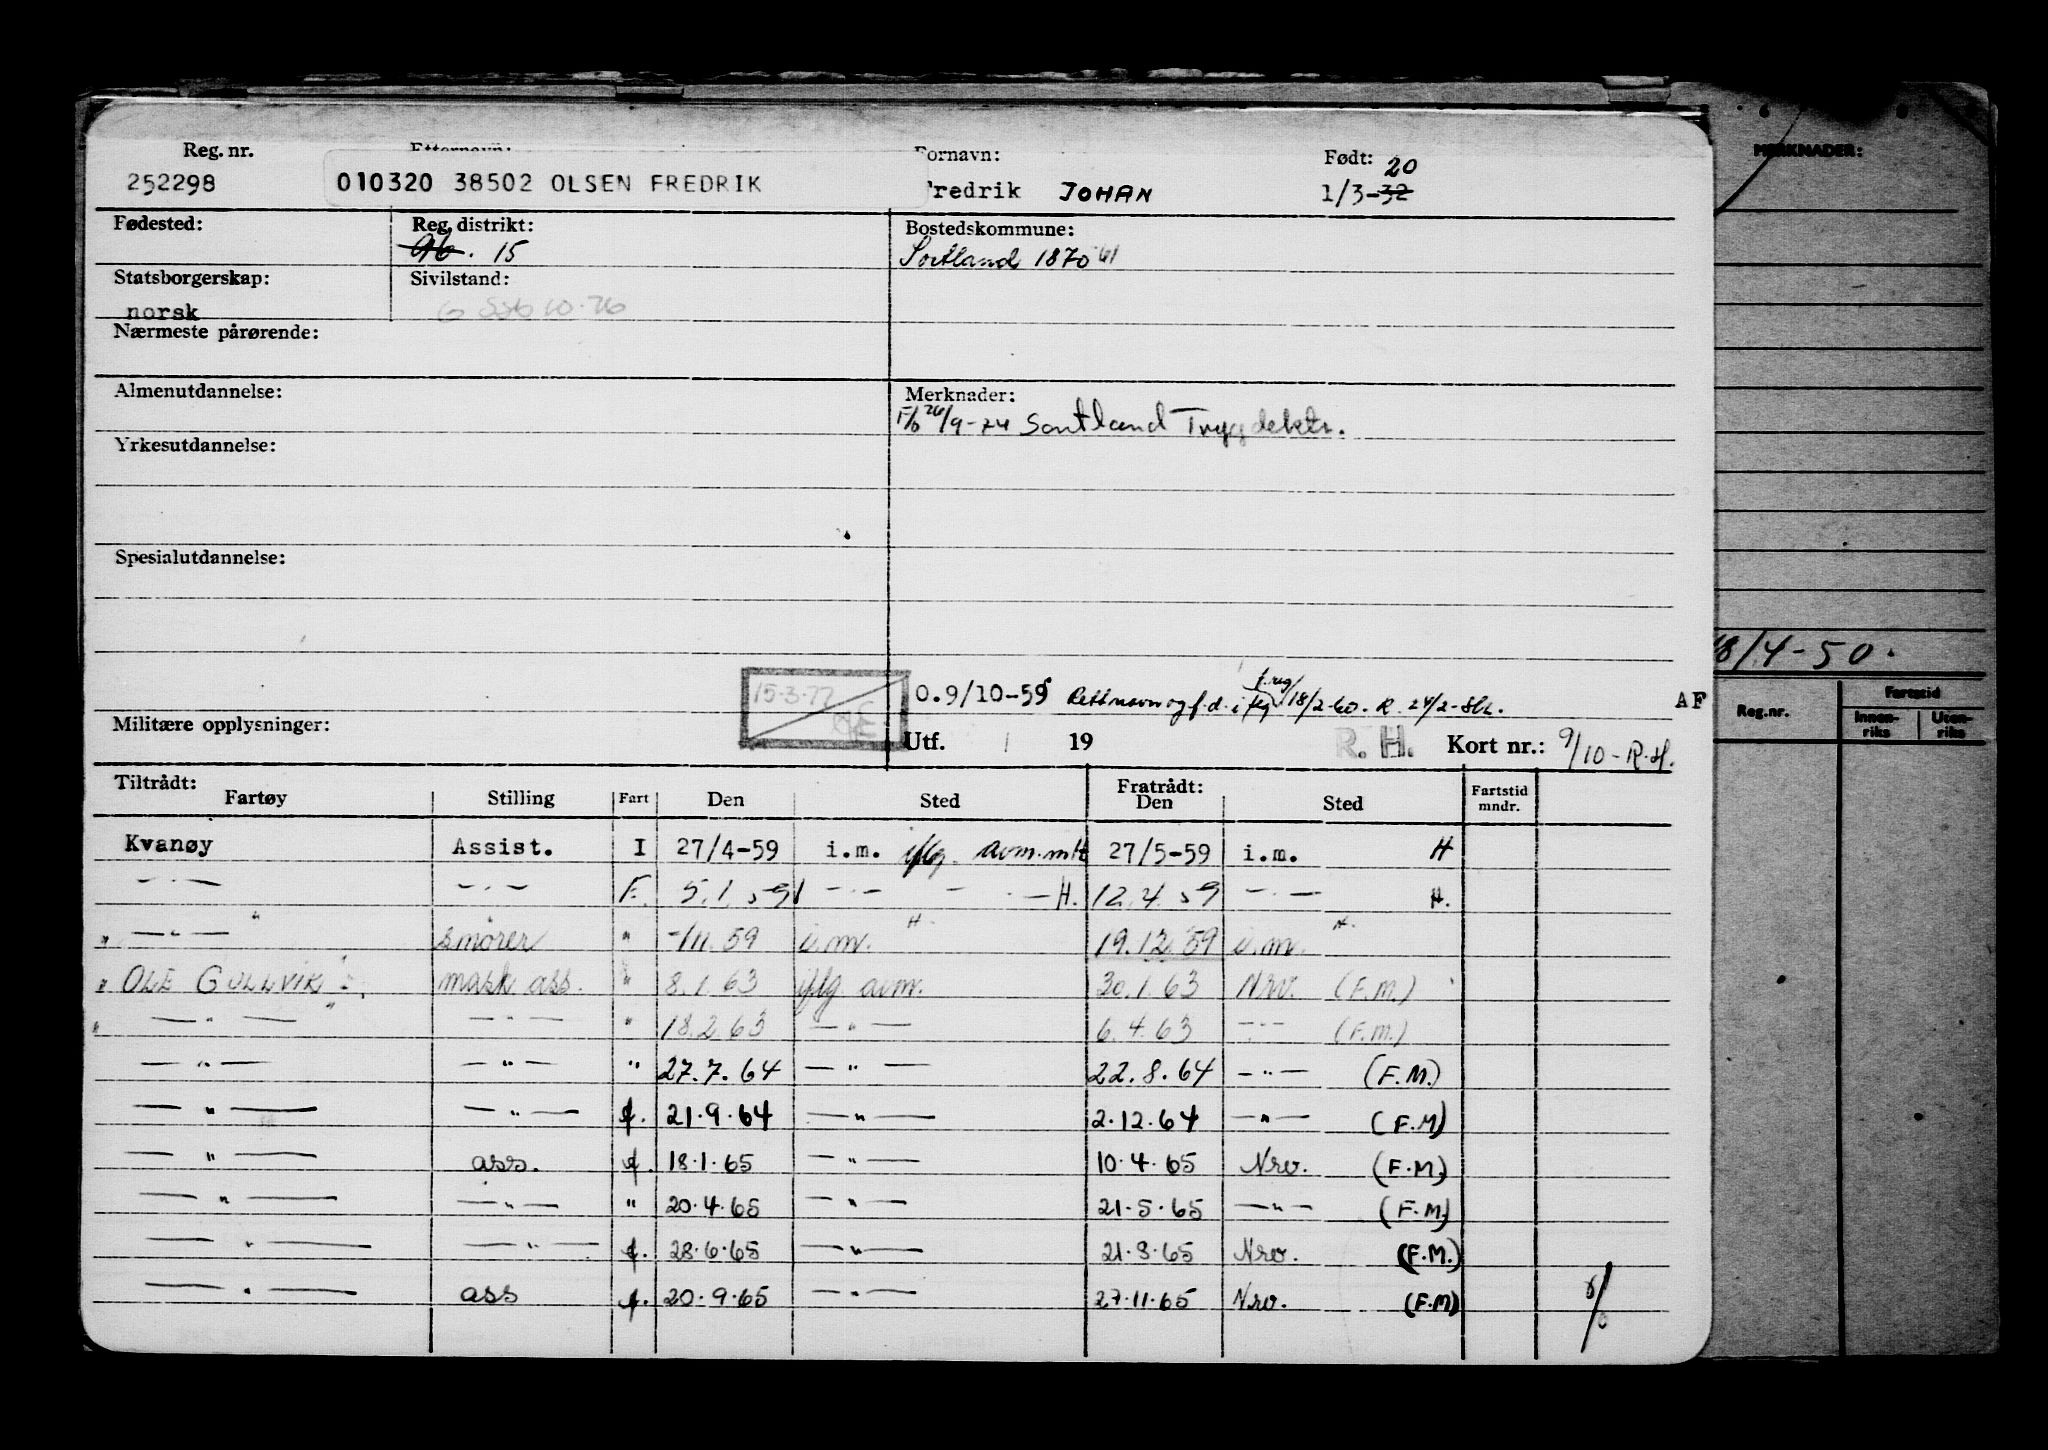 Reg. nr. Fornavn: Født: 20
252298 010320 38502 OLSEN FREDRIK Fredrik JOHAN 1/3-32
Fødested: Reg. distrikt: Bostedskommune:
15 Sortland 1870 61
Statsborgerskap: Sivilstand:
norsk
Nærmeste pårørende:
Almenutdannelse: Merknader:
26/9-74 Sortland Trygdektr.
Yrkesutdannelse:
Spesialutdannelse:
15.3.77
O.9/10-59 Rett navn og f.d. i flg f.reg 18/2-60. R. 24/2-
AF
Militære opplysninger: Utf. 19 R. H. Kort nr.: 9/10-R.H.
Tiltrådt: Fratrådt:
Fartøy Stilling Fart Den Sted Den Sted Fartstid mndr.
Kvanøy Assist. I 27/4-59 i.m. iflg. avm. 27/5-59 i.m. H
— " — — " — F. 5.1.59 — " — — H. 12.4.59 — " — H.
" — " — smører " -/11.59 i.m. H. 19.12.59 i.m. H.
" OLE GULLVIK mask ass. " 8.1.63 iflg avm. 30.1.63 Nrv. (F.M.)
" — " — — " — " 18.2.63 — " — 6.4.63 — " — (F.M.)
— " — — " — " 27.7.64 — " — 22.8.64 — " — (F.M.)
— " — — " — f. 21.9.64 — " — 2.12.64 — " — (F.M)
— " — ass. f. 18.1.65 — " — 10.4.65 Nrv. (F.M)
— " — — " — " 20.4.65 — " — 21.5.65 — " — (F.M)
— " — — " — f. 28.6.65 — " — 21.8.65 Nrv. (F.M.)
— " — ass f. 20.9.65 — " — 27.11.65 Nrv. (F.M)
MERKNADER:
18/4-50.
Reg.nr. Fartstid
Innen-riks Uten-riks